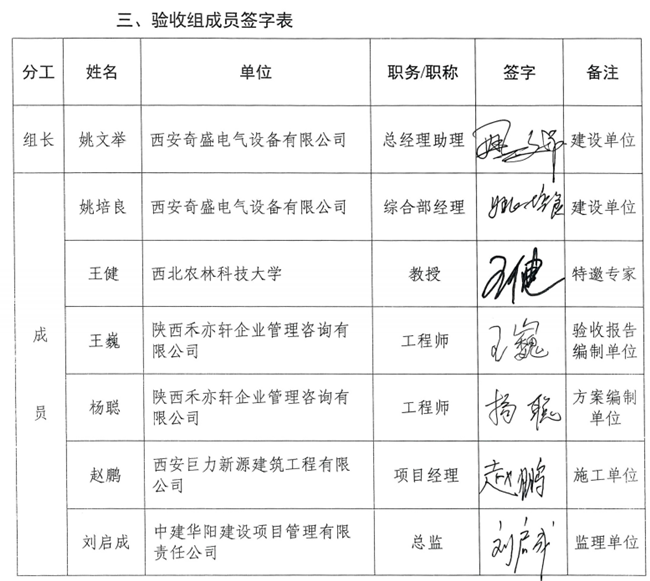 三、验收组成员签字表
分工 姓名 单位 职务/职称 签字 备注
组长 姚文举 西安奇盛电气设备有限公司 总经理助理 建设单位
姚培良 西安奇盛电气设备有限公司 综合部经理 姚培良 建设单位
王健 西北农林科技大学 教授 王健 特邀专家
成
王巍 陕西禾亦轩企业管理咨询有
限公司 工程师 王巍 验收报告
编制单位
员
杨聪 陕西禾亦轩企业管理咨询有
限公司 工程师 杨聪 方案编制
单位
赵鹏 西安巨力新源建筑工程有限
公司 项目经理 赵鹏 施工单位
刘启成 中建华阳建设项目管理有限
责任公司 总监 刘启成 监理单位